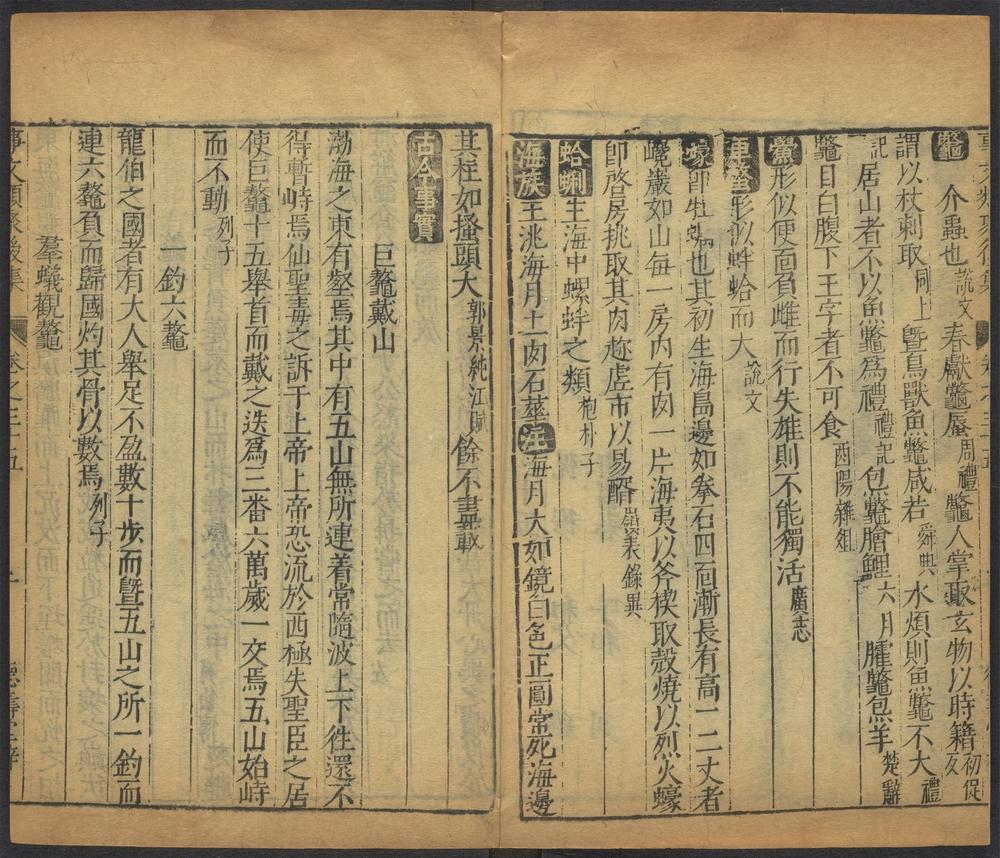 鼈 介蟲也 說文 春獻鼈蜃 周禮 鼈人掌取玄物以時籍 初促反
謂以杖刺取 同上 曁鳥獸魚鼈咸若 舜典 水煩則魚鼈不大 禮
記 居山者不以魚鼈爲禮 禮記 炰鼈膾鯉 六月 臛鼈炰羊 楚辭
鼈目白腹下王字者不可食 酉陽雜俎
鱟 形似便面負雌而行失雄則不能獨活 廣志
車螯 形似蚌蛤而大 說文
蠔 即牡蠣也其初生海島邊如拳石四面漸長有高一二丈者
巉巖如山每一房內有肉一片海夷以斧楔取殼燒以烈火蠔
即啓房挑取其肉趂虛市以易酳 嶺表錄異
蛤蜊 生海中螺蚌之類 抱朴子
海族 王洮海月土肉石華 注 海月大如鏡白色正圓常死海邊
其柱如搔頭大 郭景純江賦 餘不盡載
古今事實
巨鼇戴山
渤海之東有壑焉其中有五山無所連着常隨波上下徃還不
得暫峙焉仙聖毒之訴于上帝上帝恐流於西極失聖臣之居
使巨鼇十五舉首而戴之迭爲三番六萬歲一交焉五山始峙
而不動 列子
釣六鼇
龍伯之國者有大人舉足不盈數十步而曁五山之所一釣而
連六鼇負而歸國灼其骨以數焉 列子
羣蟻觀鼇
事文類聚後集 卷之三十五